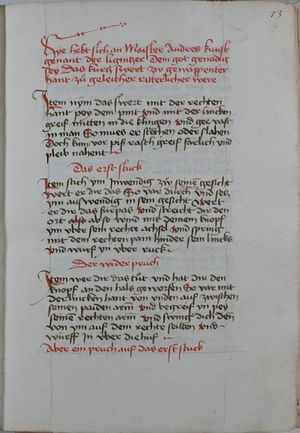 73
Hye hebt sich an Maister Andres kunst
genant der lignitzer Dem got genadig
sey Das kurcz swert zw gewappenter
hant zw geleicher ritterlicher were
Item nym das swert mit der rechten
hant pey dem pint und mit der lincken
greif mitten in die klingen und ge vast
in man So mues er stechen oder slahen
Doch kum vor pas rasch greif förlich und
pleib nahent
Das erst stuck
Item stich ym Inwendig zw seinem gesicht
wert er dir das So var durch und secz
ym auswendig in sein gesicht wert
er dir das fürpas und streicht dir den
ort also ab So wind mit deinem knopf
ym uber sein rechte achsel und spring
mit dem rechten pain hinder sein lincks
und wurf yn uber ruck
Der wider pruch
Item wer dir das tut und hat dir den
knopf an den hals geworfen So var mit
der lincken hant von unden auf zwischen
seinen paiden armen und begreif yn pey
seinem rechten arm und swing dich den
von ym auf dein rechte seitten und
wurff yn uber die huf
Aber ein pruch auf das erst stuck